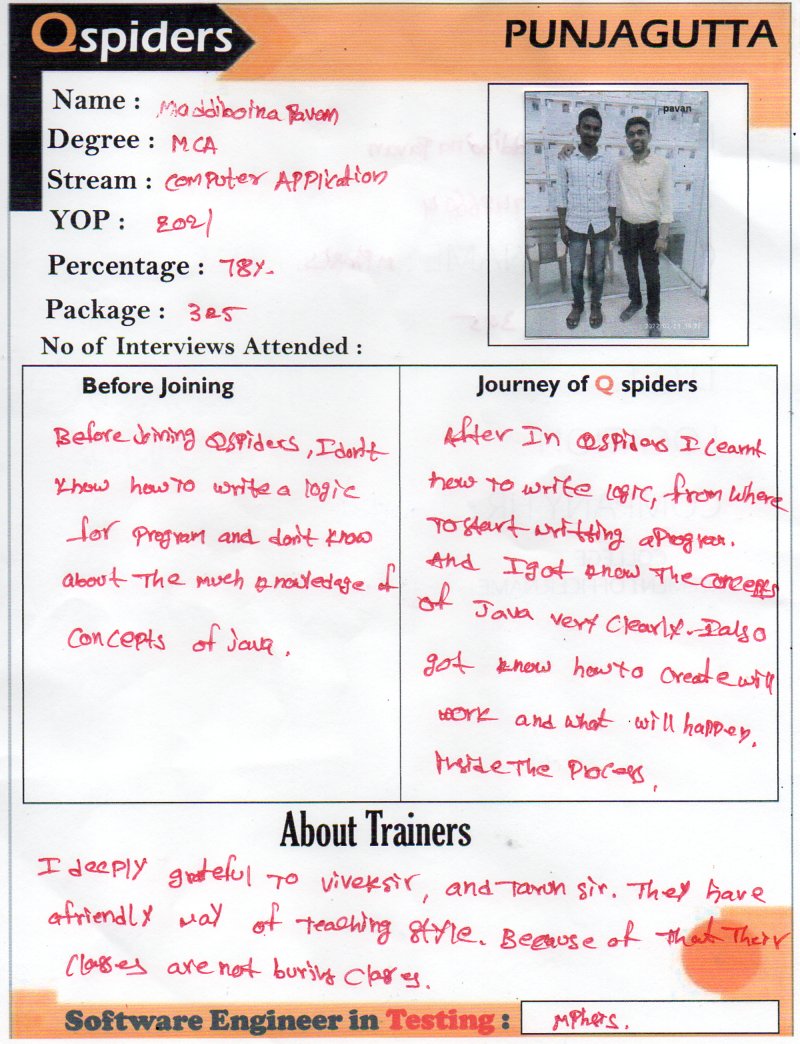 Qspiders
PUNJAGUTTA
Name : Maddiboina Pavan
Degree : MCA
Stream : Computer APPlication
YOP : 2021
Percentage : 78%
Package : 325
No of Interviews Attended :
pavan
Before Joining
Before Joining QSPiders, I don't
know how to write a logic
for program and don't know
about The much knowledge of
concepts of java.
Journey of Q spiders
After In QSPiders I learnt
how to write logic, from where
To start writting a Program.
And I got know The concepts
of Java very clearly. I also
got know how to create will
work and what will happen.
inside The Process.
About Trainers
I deePly grateful To vivek sir, and Tarun sir. They have
a friendly way of Teaching style. Because of That Their
Classes are not buring Clases.
Software Engineer in Testing : MPhers.